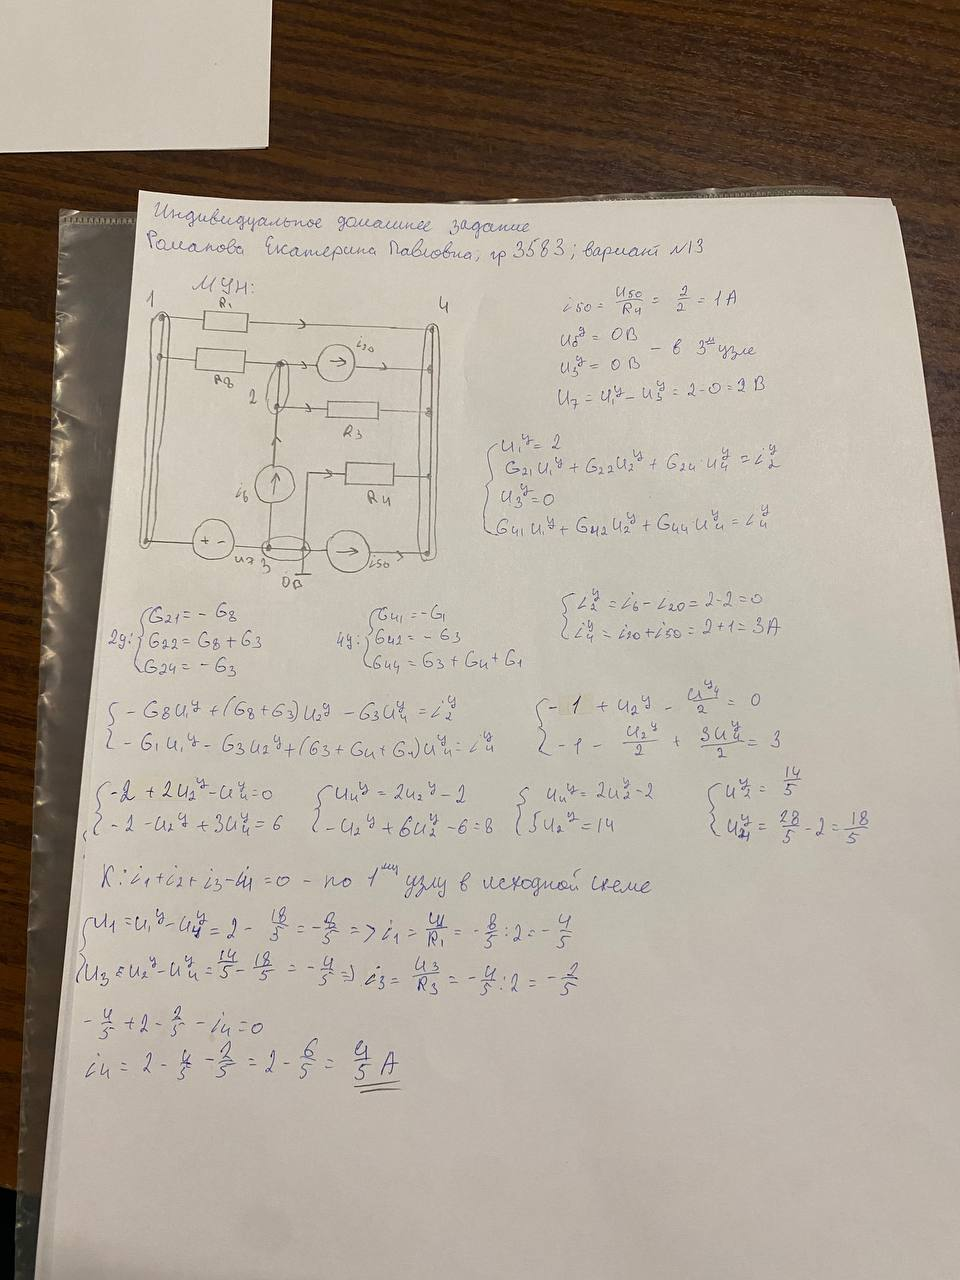 Индивидуальное домашнее задание
Романова Екатерина Павловна, гр 3583; вариант №13
МУН:
1
R1
4
i20
R8
2
R3
i6
R4
+ -
u7
3
0В
i50
i50 = u50/R4 = 2/2 = 1 А
u5^у = 0В
u3^у = 0 В
- в 3м узле
u7 = u1^у - u3^у = 2-0 = 2 В
{ u1^у = 2
G21 u1^у + G22 u2^у + G24 · u4^у = i2^у
u3^у = 0
G41 u1^у + G42 u2^у + G44 · u4^у = i4^у
2у: { G21 = - G8
G22 = G8 + G3
G24 = - G3
4у: { G41 = -G1
G42 = - G3
G44 = G3 + G4 + G1
{ i2^у = i6 - i20 = 2-2 = 0
i4^у = i20 + i50 = 2+1 = 3А
{ - G8 u1^у + (G8+G3) u2^у - G3 u4^у = i2^у
- G1 u1^у - G3 u2^у + (G3 + G4 + G1) u4^у = i4^у
{ - 1 + u2^у - u4^у/2 = 0
-1 - u2^у/2 + 3u4^у/2 = 3
{ -2 + 2u2^у - u4^у = 0
-2 - u2^у + 3u4^у = 6
{ u4^у = 2u2^у - 2
-u2^у + 6u2^у - 6 = 8
{ u4^у = 2u2^у - 2
5u2^у = 14
{ u2^у = 14/5
u4^у = 28/5 - 2 = 18/5
К: i1 + i2 + i3 - i4 = 0 - по 1му узлу в исходной схеме
{ u1 = u1^у - u4^у = 2 - 18/5 = -8/5 => i1 = u1/R1 = - 8/5 : 2 = - 4/5
u3 = u2^у - u4^у = 14/5 - 18/5 = - 4/5 => i3 = u3/R3 = - 4/5 : 2 = - 2/5
- 4/5 + 2 - 2/5 - i4 = 0
i4 = 2 - 4/5 - 2/5 = 2 - 6/5 = 4/5 А